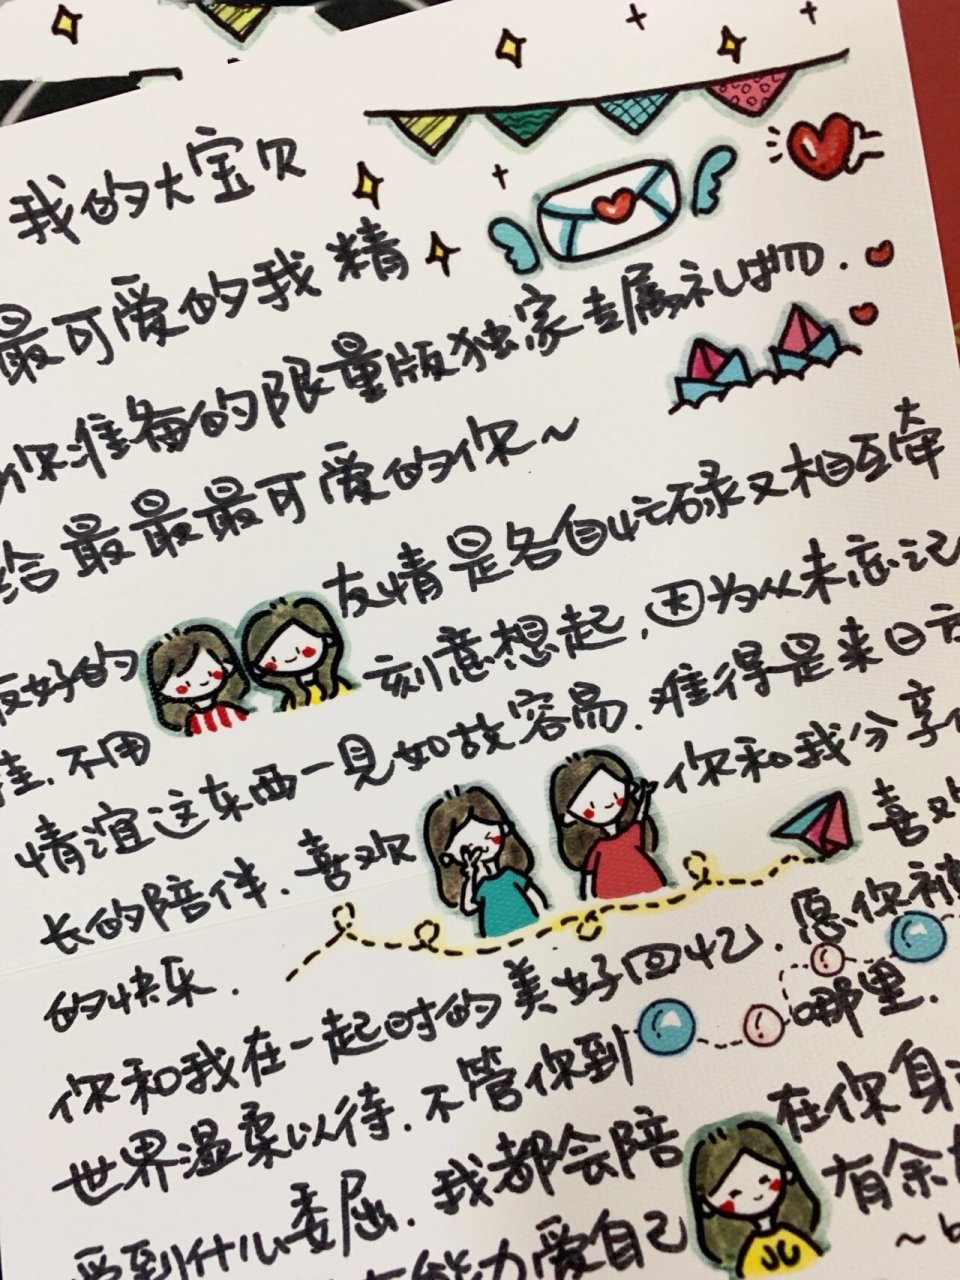 我的大宝贝
最可爱的我精
你准备的限量版独家专属礼物.
给最最最可爱的你~
友情是各自忙碌又相互牵
好的
挂.不用 刻意想起,因为从未忘记
情谊这东西一见如故容易.难得是来日方
长的陪伴.喜欢 你和我分享
的快乐. 喜欢
你和我在一起时的美好回忆.愿你被
世界温柔以待.不管你到 哪里.
受到什么委屈.我都会陪 在你身
能力爱自己 有余